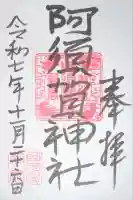 奉拝
阿須賀神社
令和七年十一月二十六日